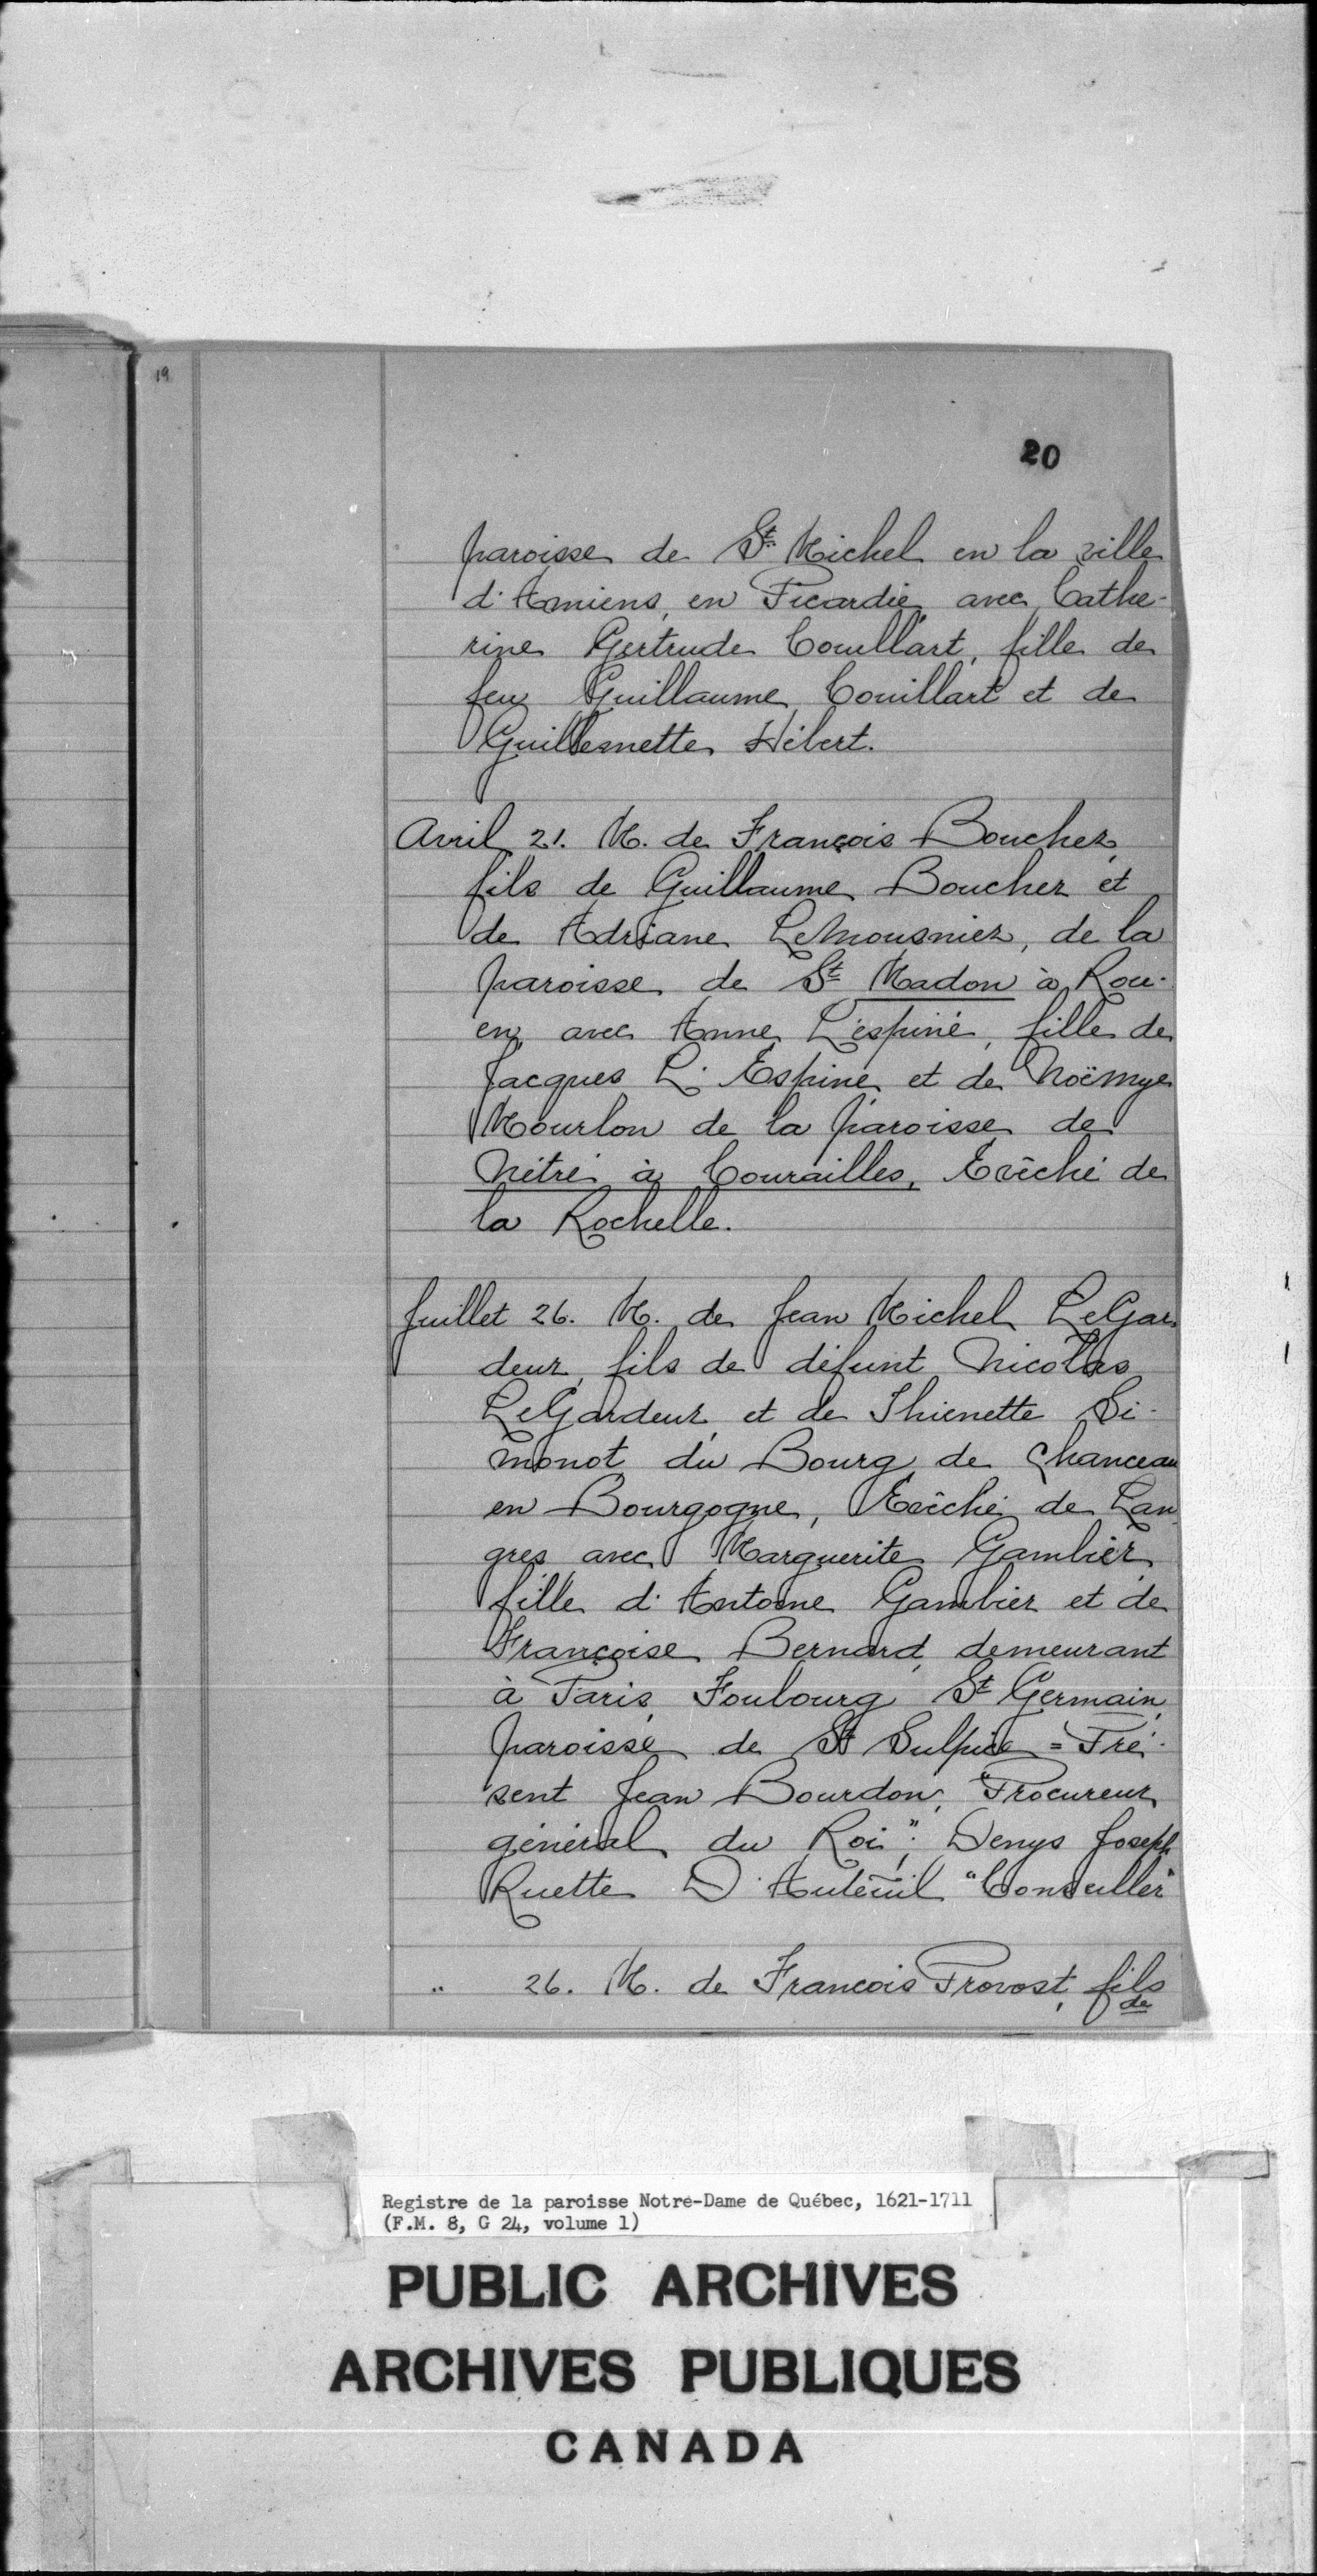 19
20
paroisse de St. Michel en la ville
d'Amiens, en Picardie, avec Cathe-
rine Gertrude Couillart, fille de
feu Guillaume Couillart et de
Guillemette Hébert.
Avril 21. M. de François Boucher,
fils de Guillaume Boucher et
de Adriane LeMousnier, de la
paroisse de St Madon à Rou-
en, avec Anne L'espine, fille de
Jacques L'Espine et de Noëmye
Mourlon de la paroisse de
Nétré à Courailles, Evêché de
la Rochelle.
Juillet 26. M. de Jean Michel LeGar-
deur, fils de défunt Nicolas
LeGardeur et de Thienette Si-
monot du Bourg de Chanceau
en Bourgogne, Evêché de Lan-
gres avec Marguerite Gambier,
fille d'Antoine Gambier et de
Françoise Bernard, demeurant
à Paris, Foubourg St Germain,
paroisse de St Sulpice = Pré-
sent Jean Bourdon, "Procureur
général du Roi"; Denys Joseph
Ruette D'Auteuil "Conseiller"
" 26. M. de Francois Provost, fils
de
Registre de la paroisse Notre-Dame de Québec, 1621-1711
(F.M. 8, G 24, volume 1)
PUBLIC ARCHIVES
ARCHIVES PUBLIQUES
CANADA